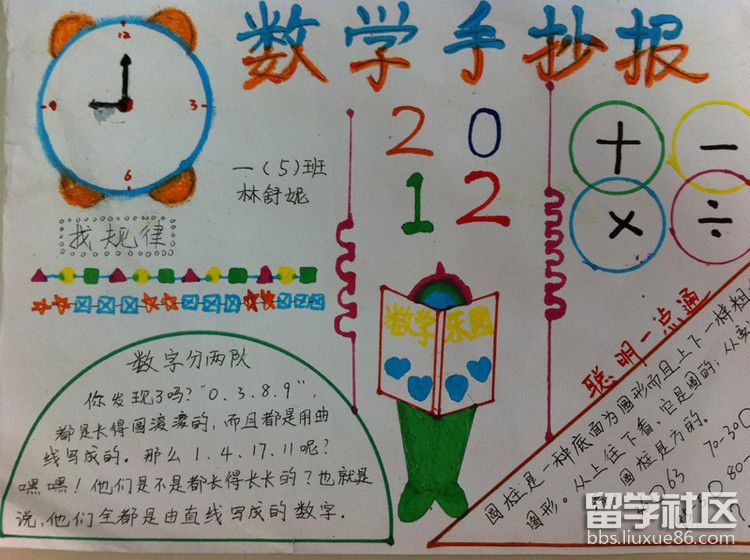 数学手抄报
12
9
3
6
20
12
一(5)班
林舒妮
+
-
×
÷
找规律
数学乐园
数字分两队
你发现了吗?“0.3.8.9”,
都是长得圆滚滚的,而且都是用曲
线写成的。那么1.4.17.11呢?
嘿嘿!他们是不是都长得长长的?也就是
说,他们全都是由直线写成的数字.
聪明一点通
圆柱是一种底面为圆形而且上下一样粗
图形。从上往下看,它是圆的;从
圆柱是方的。
63
70-30
80-
留学社区
bbs.liuxue86.com